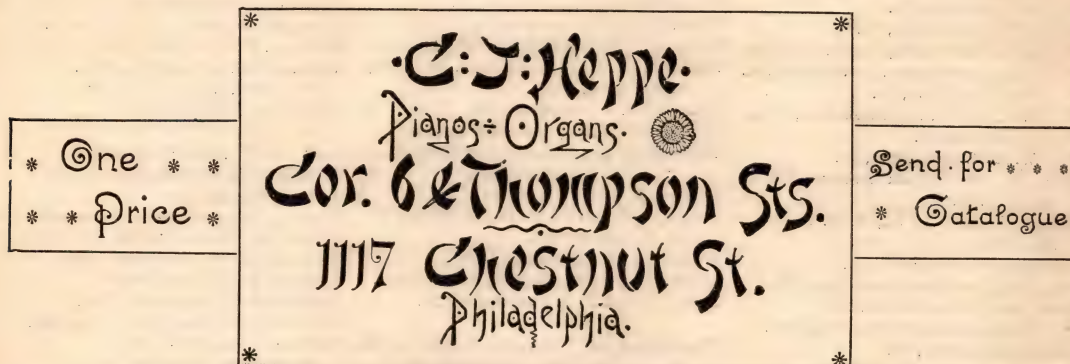 One
Price
·C:J:Heppe·
Pianos÷Organs.
Cor. 6 & Thompson Sts.
1117 Chestnut St.
Philadelphia.
Send for
Catalogue